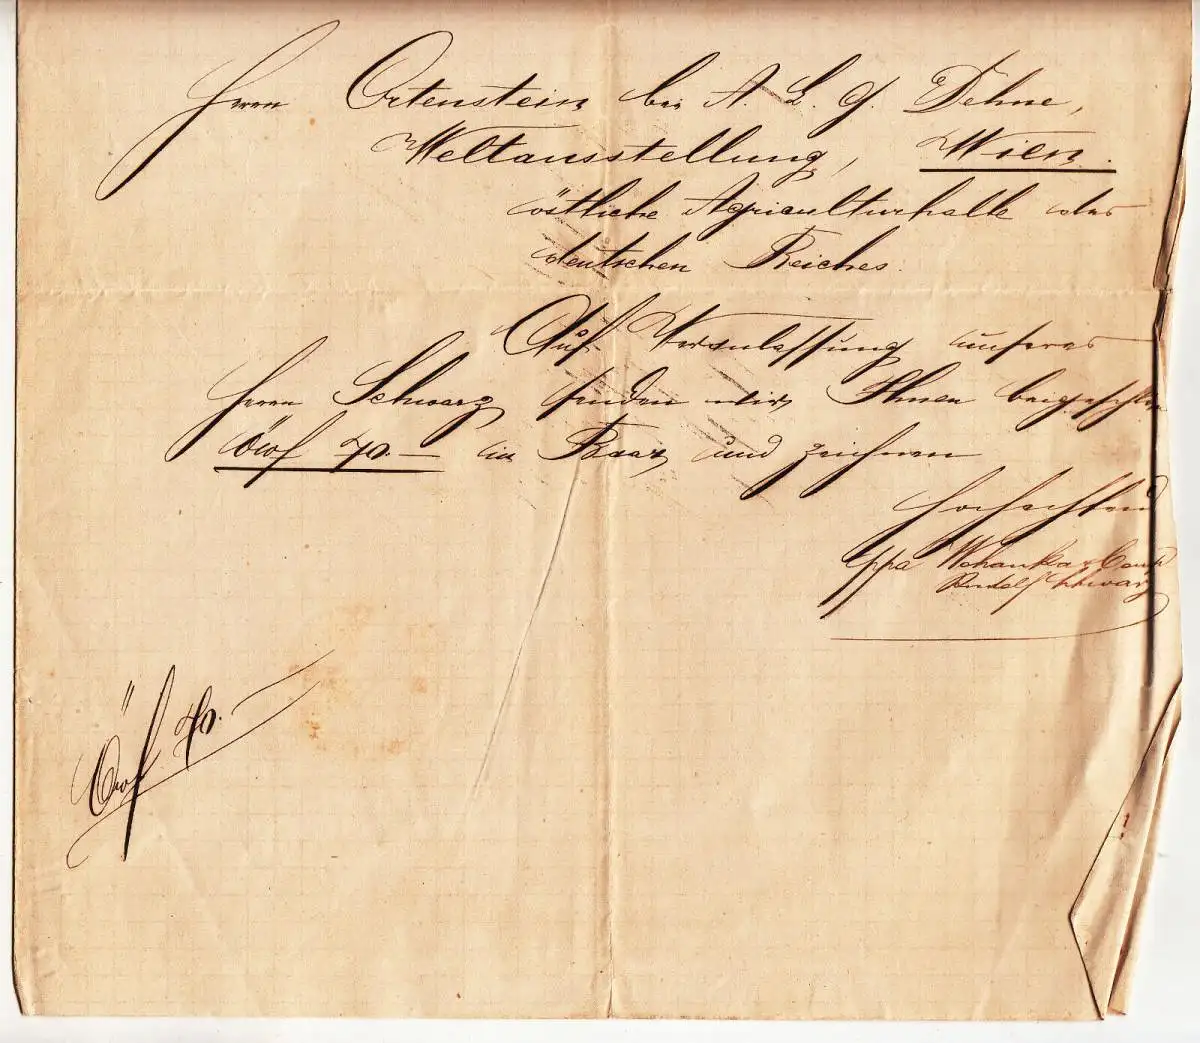 Herrn Ortenstein bei A. L. G. Dehne,
Weltausstellung, Wien.
östliche Agriculturhalle des
deutschen Reiches.
Auf Veranlassung unseres
Herrn Schwarz senden wir Ihnen beigeschlossen
öwf 70.— in Baar und zeichnen
hochachtend
ppa Wohanka & Comp
Rudolf Schwarz
Öwf 70.—